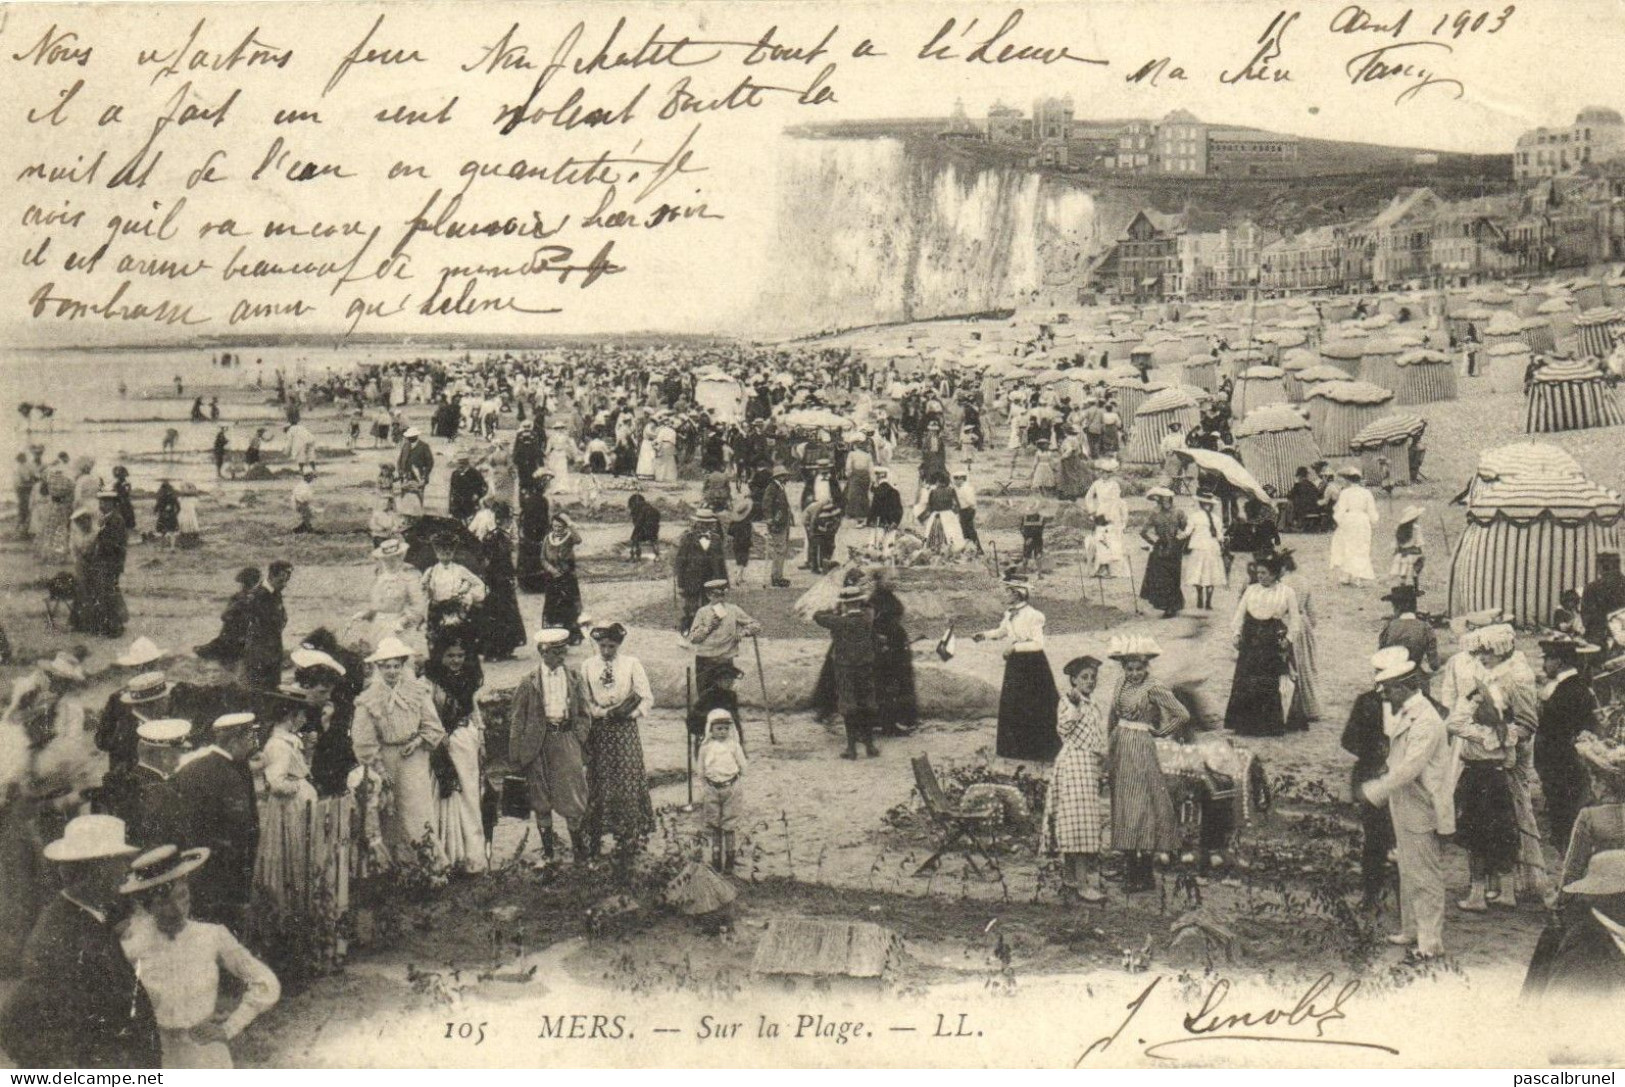 15 Aout 1903
Ma chère Fancy
Nous repartons pour Neufchatel tout a l'heure
il a fait un vent violent toute la
nuit et de l'eau en quantité, je
crois qu'il va encore pleuvoir, hier soir
il est arrivé beaucoup de monde, je
t'embrasse ainsi qu'helene
J. Lenoble
105 MERS. — Sur la Plage. — LL.
pascalbrunel